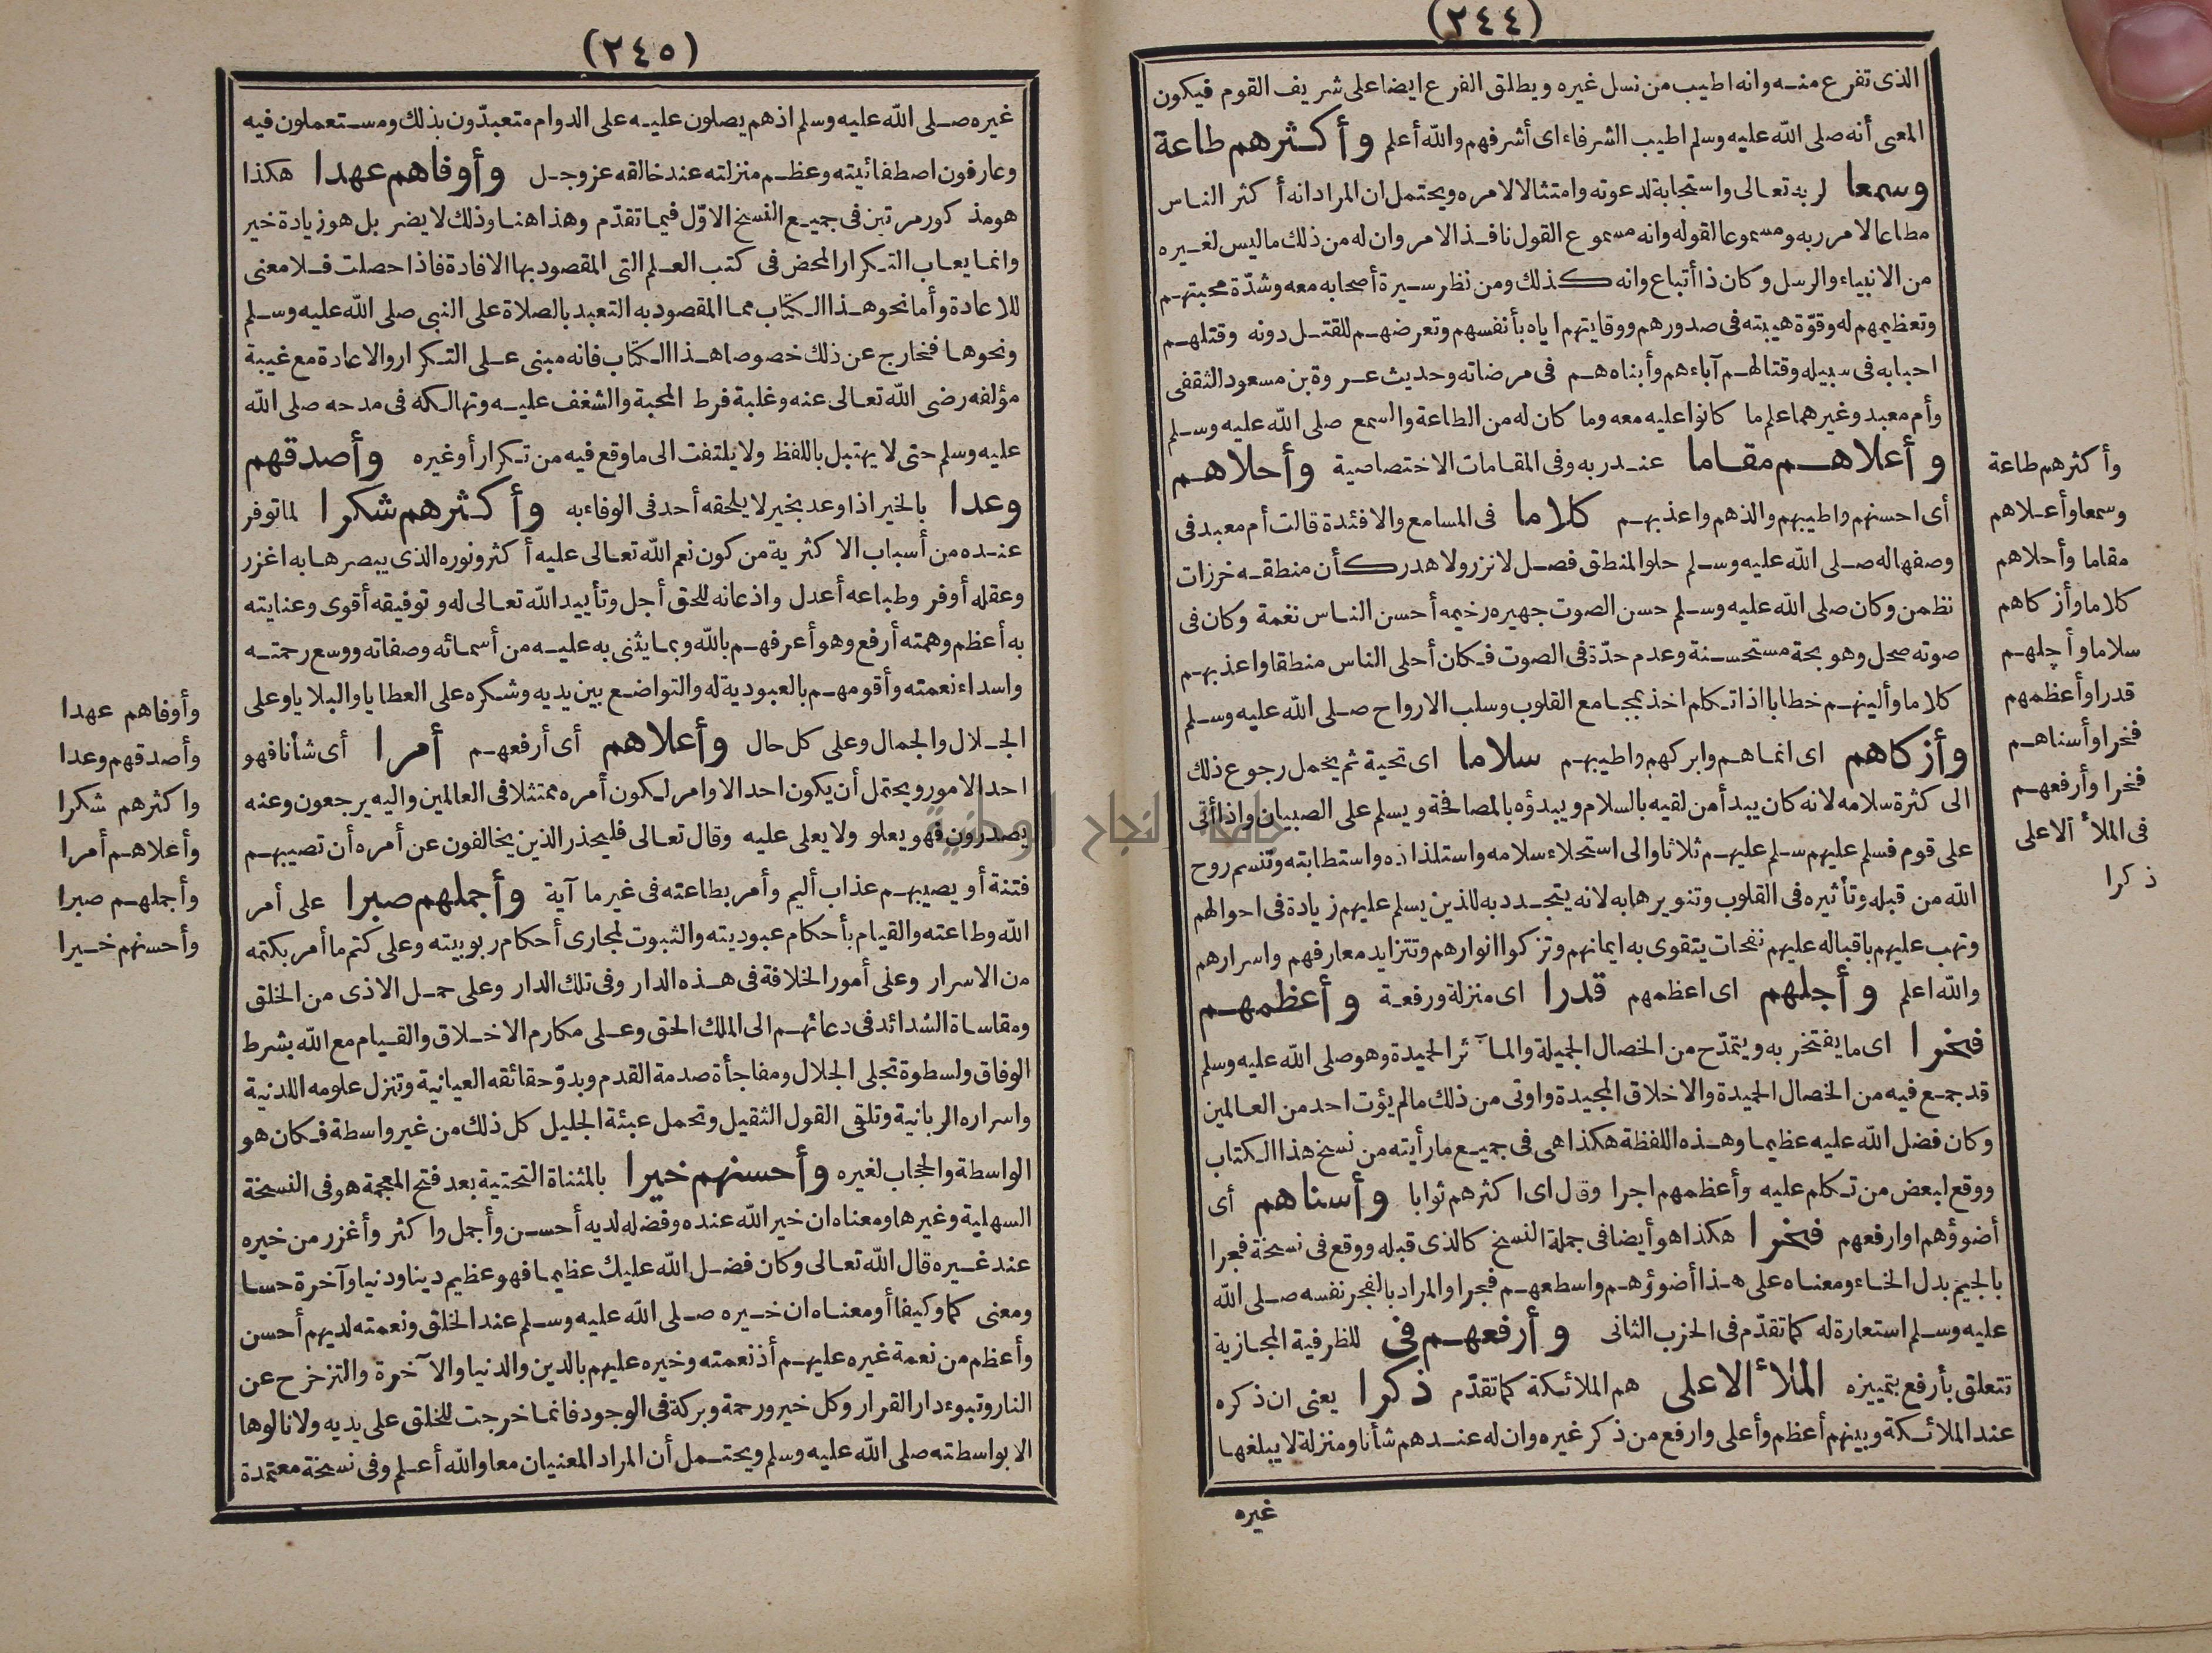 (٢٤٤)
الذى تفرع منه وانه اطيب من نسل غيره ويطلق الفرع ايضا على شريف القوم فيكون
المعنى أنه صلى الله عليه وسلم اطيب الشرفاء اى أشرفهم والله أعلم وأكثرهم طاعة
وسمعا لربه تعالى واستجابة لدعوته وامتثالا لامره ويحتمل ان المراد انه أكثر الناس
مطاعا لامر ربه ومسموعا لقوله وانه مسموع القول نافذ الامر وان له من ذلك ما ليس لغيره
من الانبياء والرسل وكان ذا أتباع وانه كذلك ومن نظر سيرة أصحابه معه وشدّة محبتهم
وتعظيمهم له وقوّة هيبته فى صدورهم ووقايتهم اياه بأنفسهم وتعرضهم للقتل دونه وقتلهم
احبابه فى سبيله وقتالهم آباءهم وأبناءهم فى مرضاته وحديث عروة بن مسعود الثقفى
وأم معبد وغيرهما علم ما كانوا عليه معه وما كان له من الطاعة والسمع صلى الله عليه وسلم
وأعلاهم مقاما عند ربه وفى المقامات الاختصاصية وأحلاهم
أى احسنهم واطيبهم والذهم واعذبهم كلاما فى المسامع والافئدة قالت أم معبد فى
وصفها له صلى الله عليه وسلم حلو المنطق فصل لا نزر ولا هدر كأن منطقه خرزات
نظمن وكان صلى الله عليه وسلم حسن الصوت جهيره رخيمه أحسن الناس نغمة وكان فى
صوته صحل وهو بحة مستحسنة وعدم حدّة فى الصوت فكان أحلى الناس منطقا واعذبهم
كلاما وألينهم خطابا اذا تكلم اخذ بمجامع القلوب وسلب الارواح صلى الله عليه وسلم
وأزكاهم اى انماهم وابركهم واطيبهم سلاما اى تحية ثم يحمل رجوع ذلك
الى كثرة سلامه لانه كان يبدأ من لقيه بالسلام ويبدؤه بالمصافحة ويسلم على الصبيان واذا أتى
على قوم فسلم عليهم سلم عليهم ثلاثا والى استحلاء سلامه واستلذاذه واستطابته وتنسم روح
الله من قبله وتأثيره فى القلوب وتنويرها به لانه يتجدد به للذين يسلم عليهم زيادة فى احوالهم
وتهب عليهم باقباله عليهم نفحات يتقوى به ايمانهم وتزكوا انوارهم وتتزايد معارفهم واسرارهم
والله اعلم وأجلهم اى اعظمهم قدرا اى منزلة ورفعة وأعظمهم
فخرا اى ما يفتخر به ويتمدّح من الخصال الجميلة والمآثر الحميدة وهو صلى الله عليه وسلم
قد جمع فيه من الخصال الحميدة والاخلاق المجيدة واوتى من ذلك ما لم يؤت احد من العالمين
وكان فضل الله عليه عظيما وهذه اللفظة هكذا هى فى جميع ما رأيته من نسخ هذا الكتاب
ووقع لبعض من تكلم عليه وأعظمهم اجرا وقال اى اكثرهم ثوابا وأسناهم أى
أضوؤهم اوارفعهم فخرا هكذا هو أيضا فى جملة النسخ كالذى قبله ووقع فى نسخة فجرا
بالجيم بدل الخاء ومعناه على هذا أضوؤهم واسطعهم فجرا والمراد بالفجر نفسه صلى الله
عليه وسلم استعارة له كما تقدّم فى الحزب الثانى وأرفعهم فى للظرفية المجازية
تتعلق بأرفع بتمييزه الملأ الاعلى هم الملائكة كما تقدّم ذكرا يعنى ان ذكره
عند الملائكة وبينهم أعظم وأعلى وارفع من ذكر غيره وان له عندهم شأنا ومنزلة لا يبلغها
غيره
وأكثرهم طاعة
وسمعا وأعلاهم
مقاما وأحلاهم
كلاما وأزكاهم
سلاما وأجلهم
قدرا وأعظمهم
فخرا وأسناهم
فخرا وأرفعهم
فى الملأ الاعلى
ذكرا
(٢٤٥)
غيره صلى الله عليه وسلم اذهم يصلون عليه على الدوام متعبدّون بذلك ومستعملون فيه
وعارفون اصطفائيته وعظم منزلته عند خالقه عز وجل وأوفاهم عهدا هكذا
هو مذكور مرتين فى جميع النسخ الاوّل فيما تقدّم وهذا هنا وذلك لا يضر بل هو زيادة خير
وانما يعاب التكرار المحض فى كتب العلم التى المقصود بها الافادة فاذا حصلت فلا معنى
للاعادة وأما نحو هذا الكتاب مما المقصود به التعبد بالصلاة على النبى صلى الله عليه وسلم
ونحوها فخارج عن ذلك خصوصا هذا الكتاب فانه مبنى على التكرار والاعادة مع غيبة
مؤلفه رضى الله تعالى عنه وغلبة فرط المحبة والشغف عليه وتهالكه فى مدحه صلى الله
عليه وسلم حتى لا يهتبل باللفظ ولا يلتفت الى ما وقع فيه من تكرار أو غيره وأصدقهم
وعدا بالخير اذا وعد بخير لا يلحقه أحد فى الوفاء به وأكثرهم شكرا لما توفر
عنده من أسباب الاكثرية من كون نعم الله تعالى عليه أكثر ونوره الذى يبصرها به اغزر
وعقله أوفر وطباعه أعدل واذعانه للحق أجل وتأييد الله تعالى له وتوفيقه أقوى وعنايته
به أعظم وهمته أرفع وهو أعرفهم بالله وبما يثنى به عليه من أسمائه وصفاته ووسع رحمته
واسداء نعمته وأقومهم بالعبودية له والتواضع بين يديه وشكره على العطايا والبلايا وعلى
الجلال والجمال وعلى كل حال وأعلاهم أى أرفعهم أمرا أى شأنا فهو
احد الامور ويحتمل أن يكون احد الاوامر لكون أمره ممتثلا فى العالمين واليه يرجعون وعنه
يصدرون فهو يعلو ولا يعلى عليه وقال تعالى فليحذر الذين يخالفون عن أمره أن تصيبهم
فتنة أو يصيبهم عذاب أليم وأمر بطاعته فى غير ما آية وأجملهم صبرا على أمر
الله وطاعته والقيام بأحكام عبوديته والثبوت لمجارى أحكام ربوبيته وعلى كتم ما أمر بكتمه
من الاسرار وعلى أمور الخلافة فى هذه الدار وفى تلك الدار وعلى حمل الاذى من الخلق
ومقاساة الشدائد فى دعائهم الى الملك الحق وعلى مكارم الاخلاق والقيام مع الله بشرط
الوفاق ولسطوة تجلى الجلال ومفاجأة صدمة القدم وبدوّ حقائقه العيانية وتنزل علومه اللدنية
واسراره الربانية وتلقى القول الثقيل وتحمل عبئة الجليل كل ذلك من غير واسطة فكان هو
الواسطة والحجاب لغيره وأحسنهم خيرا بالمثناة التحتية بعد فتح المعجمة هو فى النسخة
السهلية وغيرها ومعناه ان خير الله عنده وفضله لديه أحسن وأجمل واكثر وأغزر من خيره
عند غيره قال الله تعالى وكان فضل الله عليك عظيما فهو عظيم دينا ودنيا وآخرة حسا
ومعنى كما وكيفا أو معناه ان خيره صلى الله عليه وسلم عند الخلق ونعمته لديهم أحسن
وأعظم من نعمة غيره عليهم أذ نعمته وخيره عليهم بالدين والدنيا والآخرة والتزحزح عن
النار وتبوء دار القرار وكل خير ورحمة وبركة فى الوجود فانما خرجت للخلق على يديه ولا نالوها
الا بواسطته صلى الله عليه وسلم ويحتمل أن المراد المعنيان معا والله أعلم وفى نسخة معتمدة
وأوفاهم عهدا
وأصدقهم وعدا
واكثرهم شكرا
وأعلاهم أمرا
وأجملهم صبرا
وأحسنهم خيرا
جامعة النجاح الوطنية